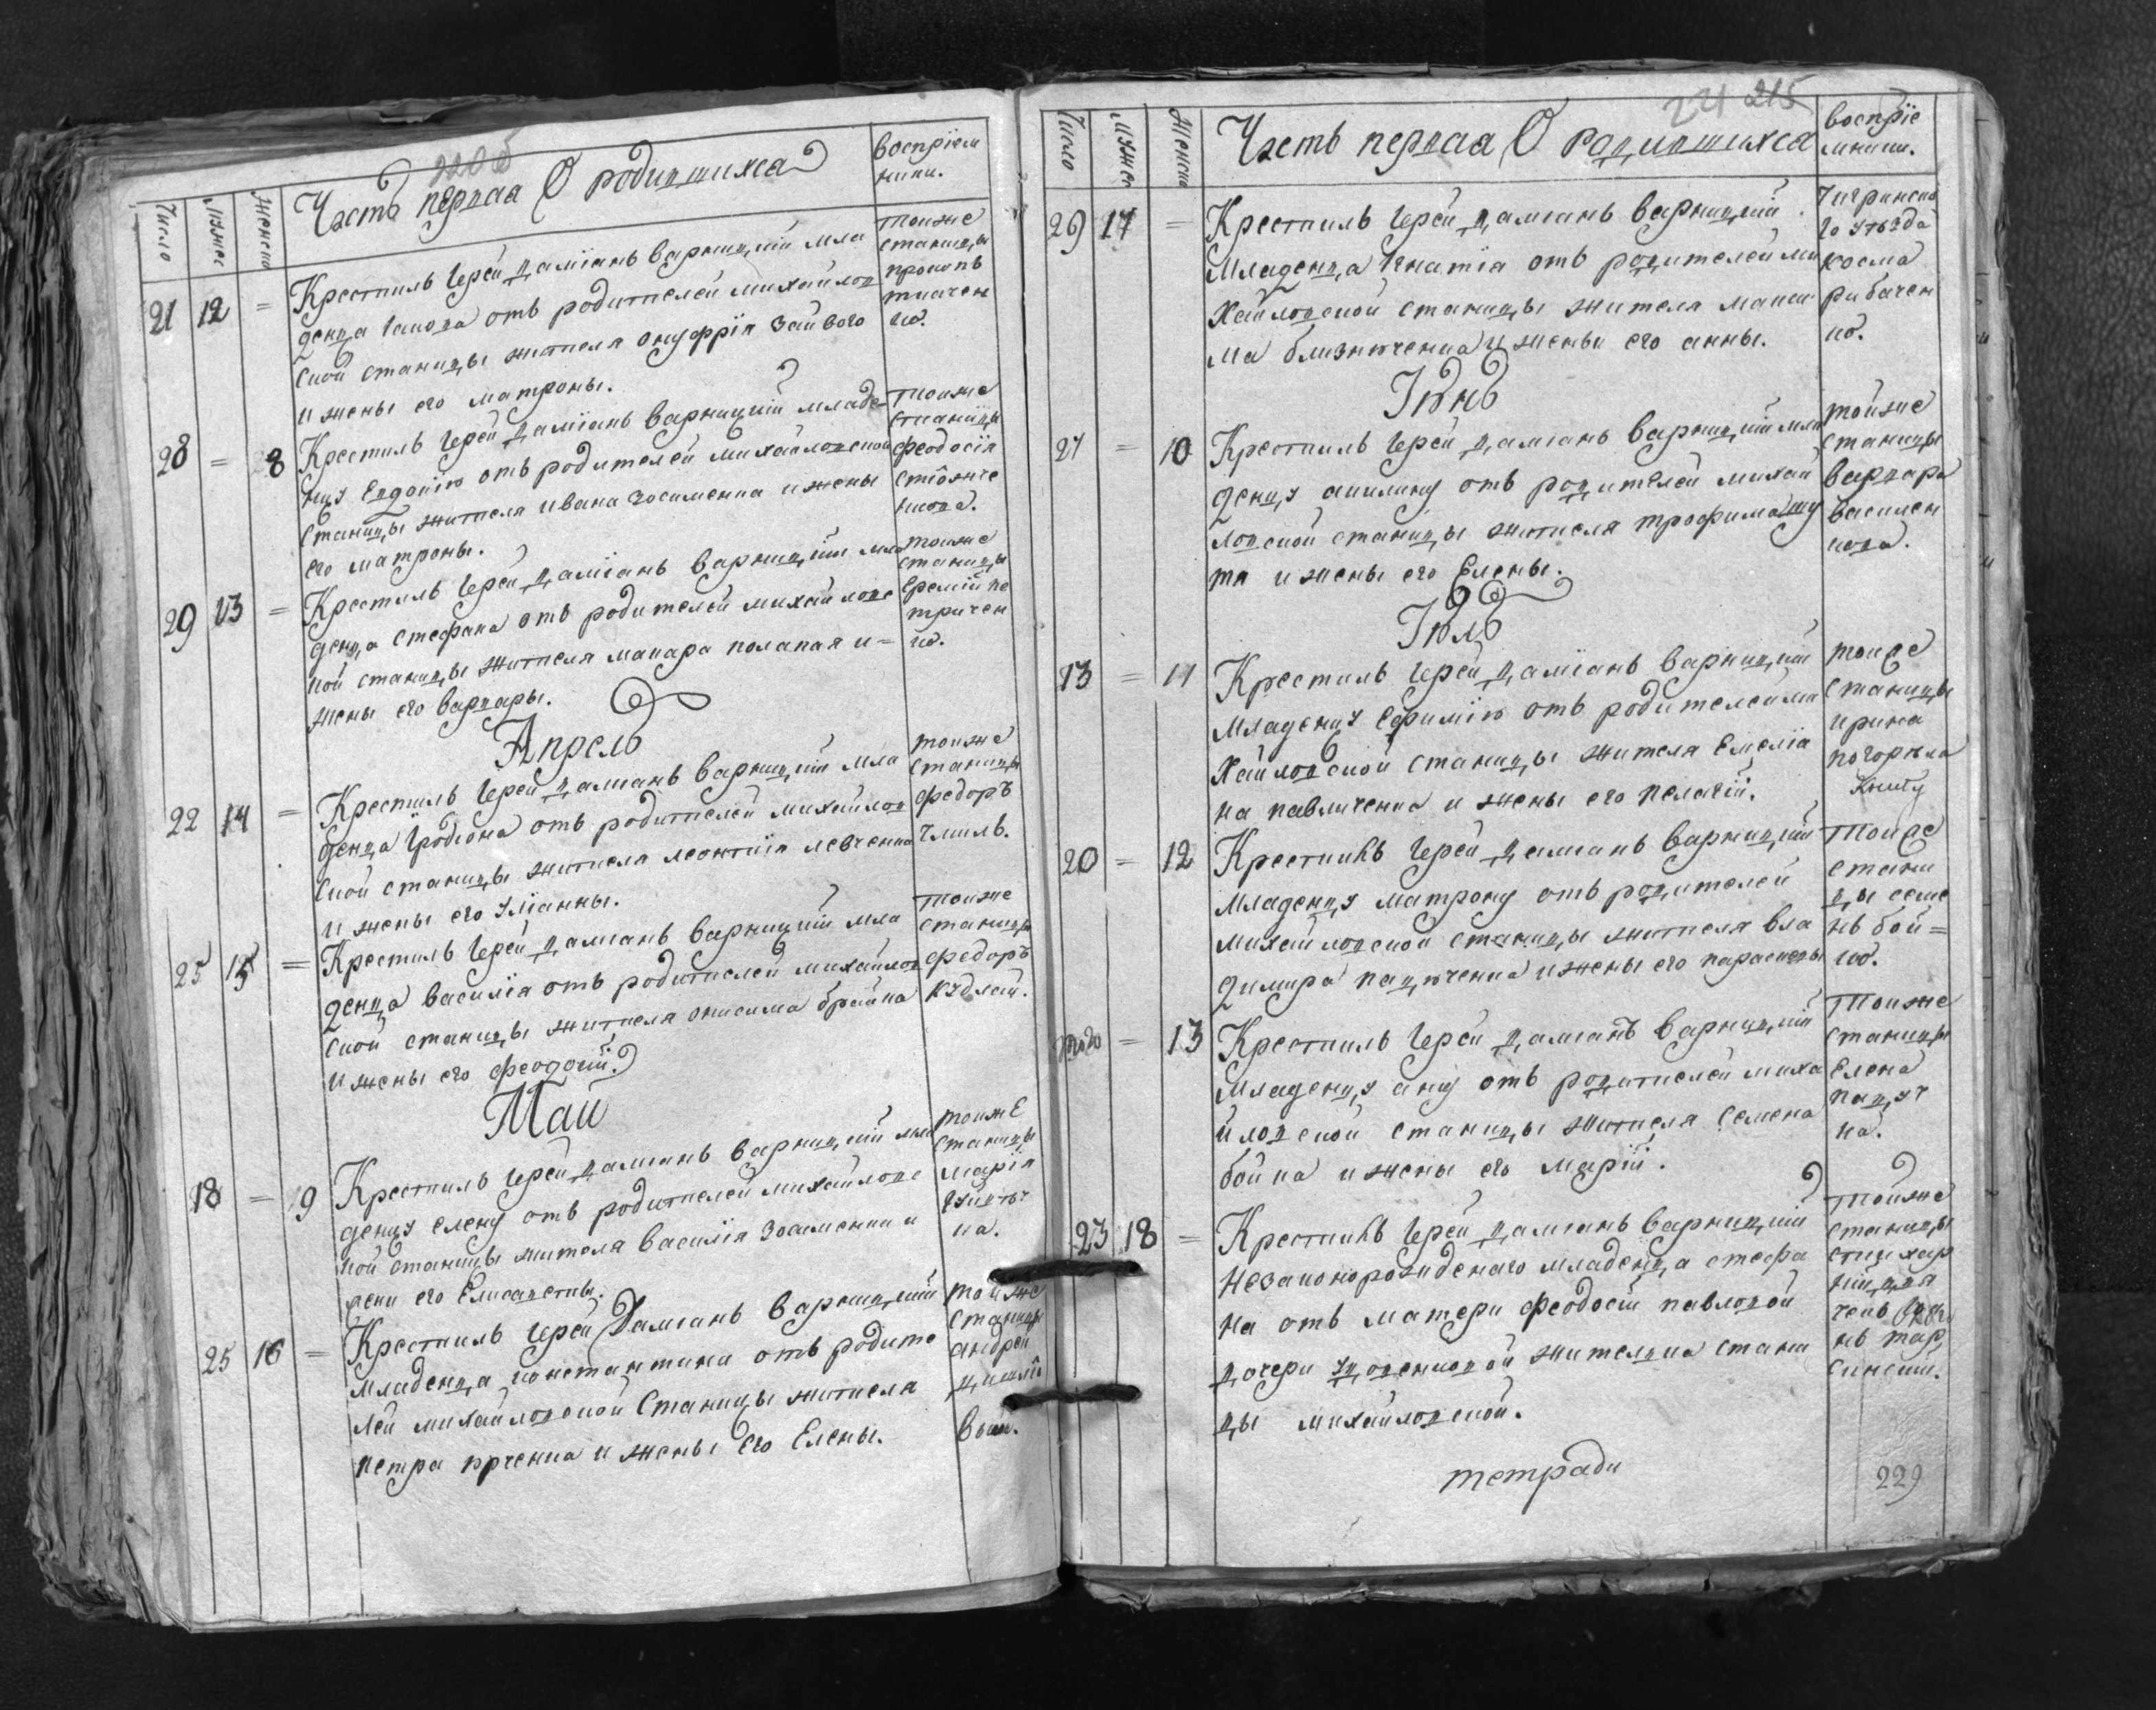 Число
Мужес
Женско
Часть первая О родившихся
восприем
ники.
21 12 =
Крестилъ Іерей Даміанъ Варницкій мла
денца Іакова отъ родителей михайлов
ской станицы жителя онуфрія
и жены его матроны.
тоиже
станицы
прокопъ
ткачен
ко.
28 = 8
Крестилъ Іерей Даміанъ Варницкій младе
нцу Евдокію отъ родителей михайловской
станицы жителя ивана Косименка и жены
его матроны.
тоиже
станицы
феодосія
нкова.
29 13 =
Крестилъ Іерей Даміанъ Варницкій мла
денца стефана отъ родителей михайловс
кой станицы жителя макара полапая и =
жены его варвары.
тоиже
станицы
Еремій пе
тричен
ко.
Апрель
22 14 =
Крестилъ Іерей Даміанъ Варницкій мла
денца Іродіона отъ родителей михайлов
ской станицы жителя леонтія левченка
и жены его уліанны.
тоиже
станицы
федоръ
чмиль.
25 15 =
Крестилъ Іерей Даміанъ Варницкій мла
денца василія отъ родителей михайлов
ской станицы жителя онисима брайка
и жены его феодосіи.
тоиже
станицы
федоръ
кудлай.
Маи
18 = 9
Крестилъ Іерей Даміанъ Варницкій мла
денцу елену отъ родителей михайловс
кой станицы жителя василія и
жени его Елисаветы.
тоиже
станицы
марія
ка.
25 16 =
Крестилъ Іерей Даміанъ Варницкій
младенца константина отъ родите
лей михайловской станицы жителя
петра и жены его Елены.
тоиже
станицы
андрей
Число
Мужес
Женско
Часть первая О родившихся
воспріе
мники.
26 17 =
Крестилъ Іерей Даміанъ Варницкій
младенца Игнатія отъ родителей ми
хайловской станицы жителя макси
ма близнюченка и жены его анны.
Чигринска
го уѣзда
косма
рибачен
ко.
Іюнь
27 = 10
Крестилъ Іерей Даміанъ Варницкій мла
денцу акилину отъ родителей михай
ловской станицы жителя трофима шу
та и жены его Елены.
тойже
станицы
варвара
василен
кова.
Іюль
13 = 11
Крестилъ Іерей Даміанъ Варницкій
младенцу ефимію отъ родителей ми
хайловской станицы жителя Емелія
на павличенка и жены его пелагіи.
тоиже
станицы
ирина
погорѣла
20 = 12
Крестилъ Іерей Даміанъ Варницкій
младенцу матрону отъ родителей
михайловской станицы жителя вла
димира пацюченка и жены его параскевы
тоиже
стани
цы семе
нъ бой =
ко.
того = 13
Крестилъ Іерей Даміанъ Варницкій
младенцу ану отъ родителей миха
йловской станицы жителя семена
бойка и жены его маріи.
тоиже
станицы
Елена
пацуч
ка.
23 18 =
Крестилъ Іерей Даміанъ Варницкій
незаконорожденаго младенца стефа
на отъ матери феодосіи павловой
дочери жителька стани
цы михайловской.
тоиже
станицы
тетради
229